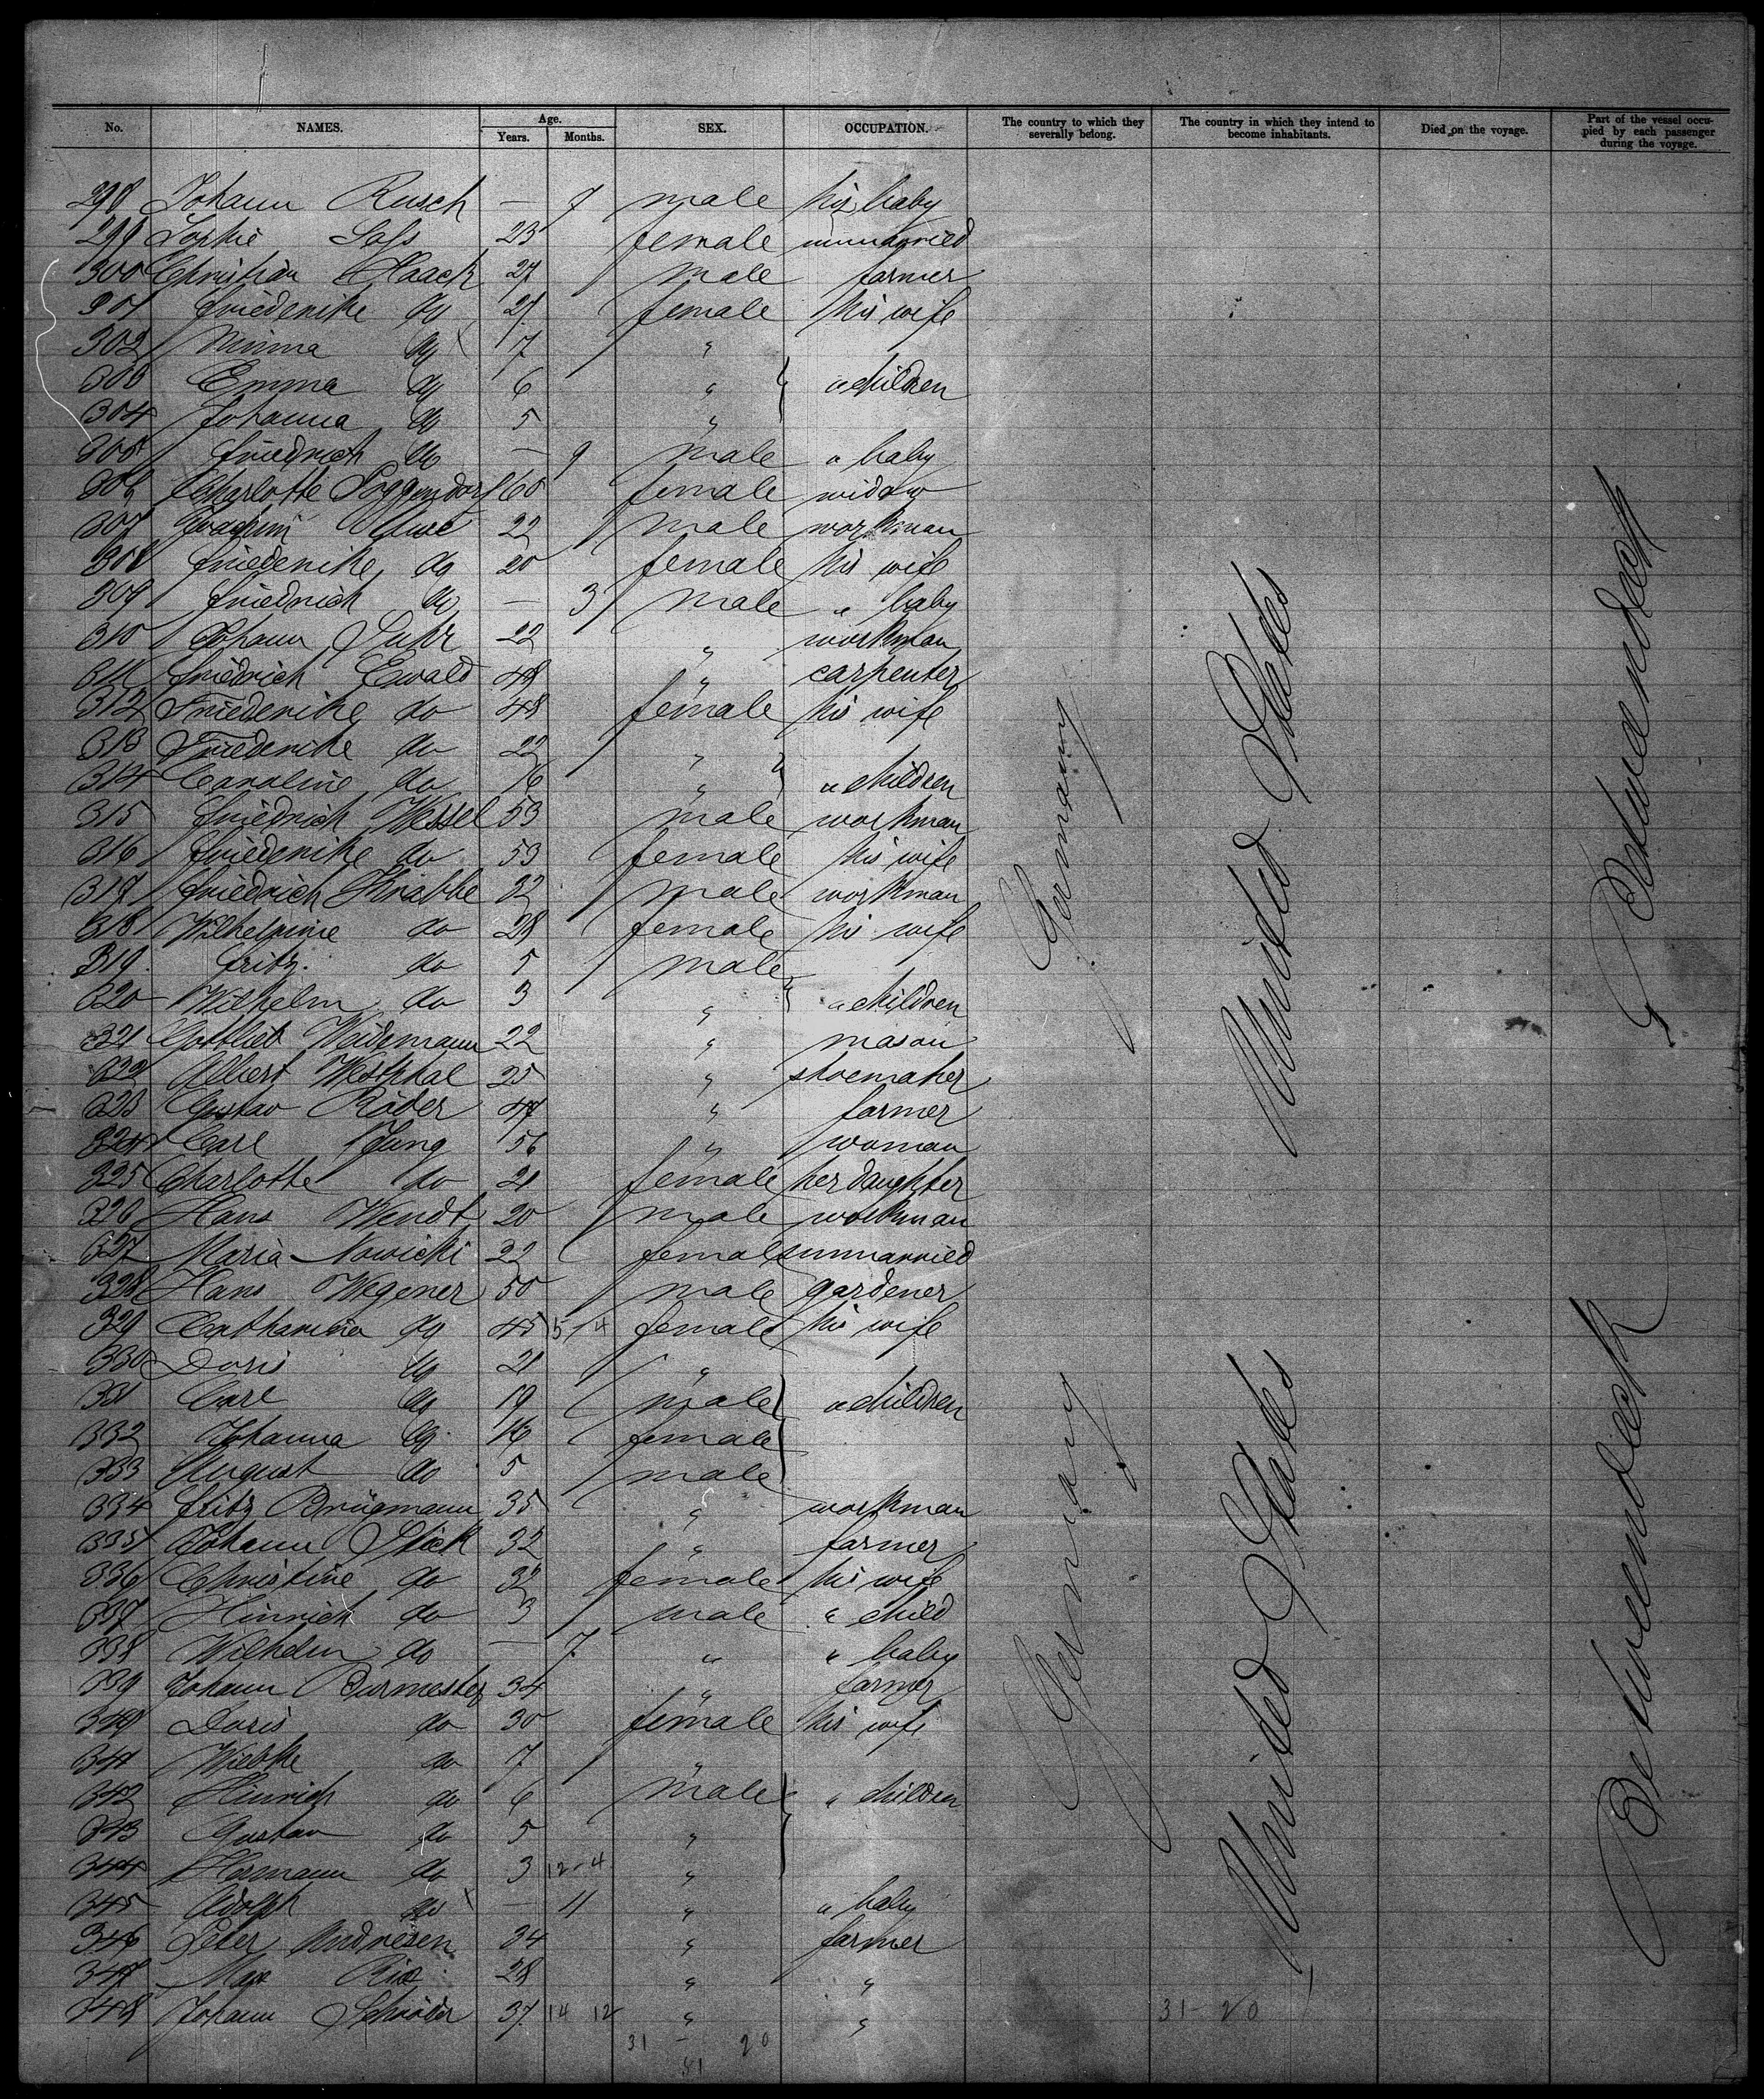 No. NAMES. Age. Years. Months. SEX. OCCUPATION. The country to which they severally belong. The country in which they intend to become inhabitants. Died on the voyage. Part of the vessel occupied by each passenger during the voyage.
298 Johann Rusch — 7 male his baby
299 Sophie Sass 23 female unmarried
300 Christian Haack 27 male farmer
301 Friederike do 27 female his wife
302 Minna do 7 "
303 Emma do 6 " " children
304 Johanna do 5 "
305 Friedrich do — 9 male " baby
306 Charlotte 60 female widow
307 Joachim 22 male workman
308 Friederike do 20 female his wife
309 Friedrich do — 3 male " baby
310 Johann Suhr 22 " workman
311 Friedrich Ewald 48 " carpenter
312 Friederike do 48 female his wife
313 Friederike do 22 "
314 Caroline do 16 " " children
315 Friedrich Wessel 53 male workman
316 Friederike do 53 female his wife
317 Friedrich Knabbe 32 male workman
318 Wilhelmine do 28 female his wife
319 Fritz do 5 male
320 Wilhelm do 3 " " children
321 Gottlieb Weidemann 22 " mason
322 Albert Westphal 25 " shoemaker
323 Gustav Röder 47 " farmer
324 Carl Jung 56 " woman
325 Charlotte do 21 female her daughter
326 Hans Wendt 20 male workman
327 Maria Nowicki 22 female unmarried
328 Hans Wegener 50 male gardener
329 Catharina do 45 5/4 female his wife
330 Doris do 21 "
331 Carl do 19 male " children
332 Johanna do 16 female
333 August do 5 male
334 Fritz Brügmann 35 " workman
335 Johann Stick 32 " farmer
336 Christine do 32 female his wife
337 Hinrich do 3 male " child
338 Wilhelm do — 7 " " baby
339 Johann Burmester 34 " farmer
340 Doris do 30 female his wife
341 Wiebke do 7 "
342 Hinrich do 6 male " children
343 Gustav do 5 "
344 Hermann do 3 12-4 "
345 Adolph do — 11 " " baby
346 Peter Andresen 34 " farmer
347 Max 28 " "
348 Johann Schröder 37 14 12 " "
31 - 20
51
Germany
Germany
United States
United States
31-20
Betweendeck
Betweendeck